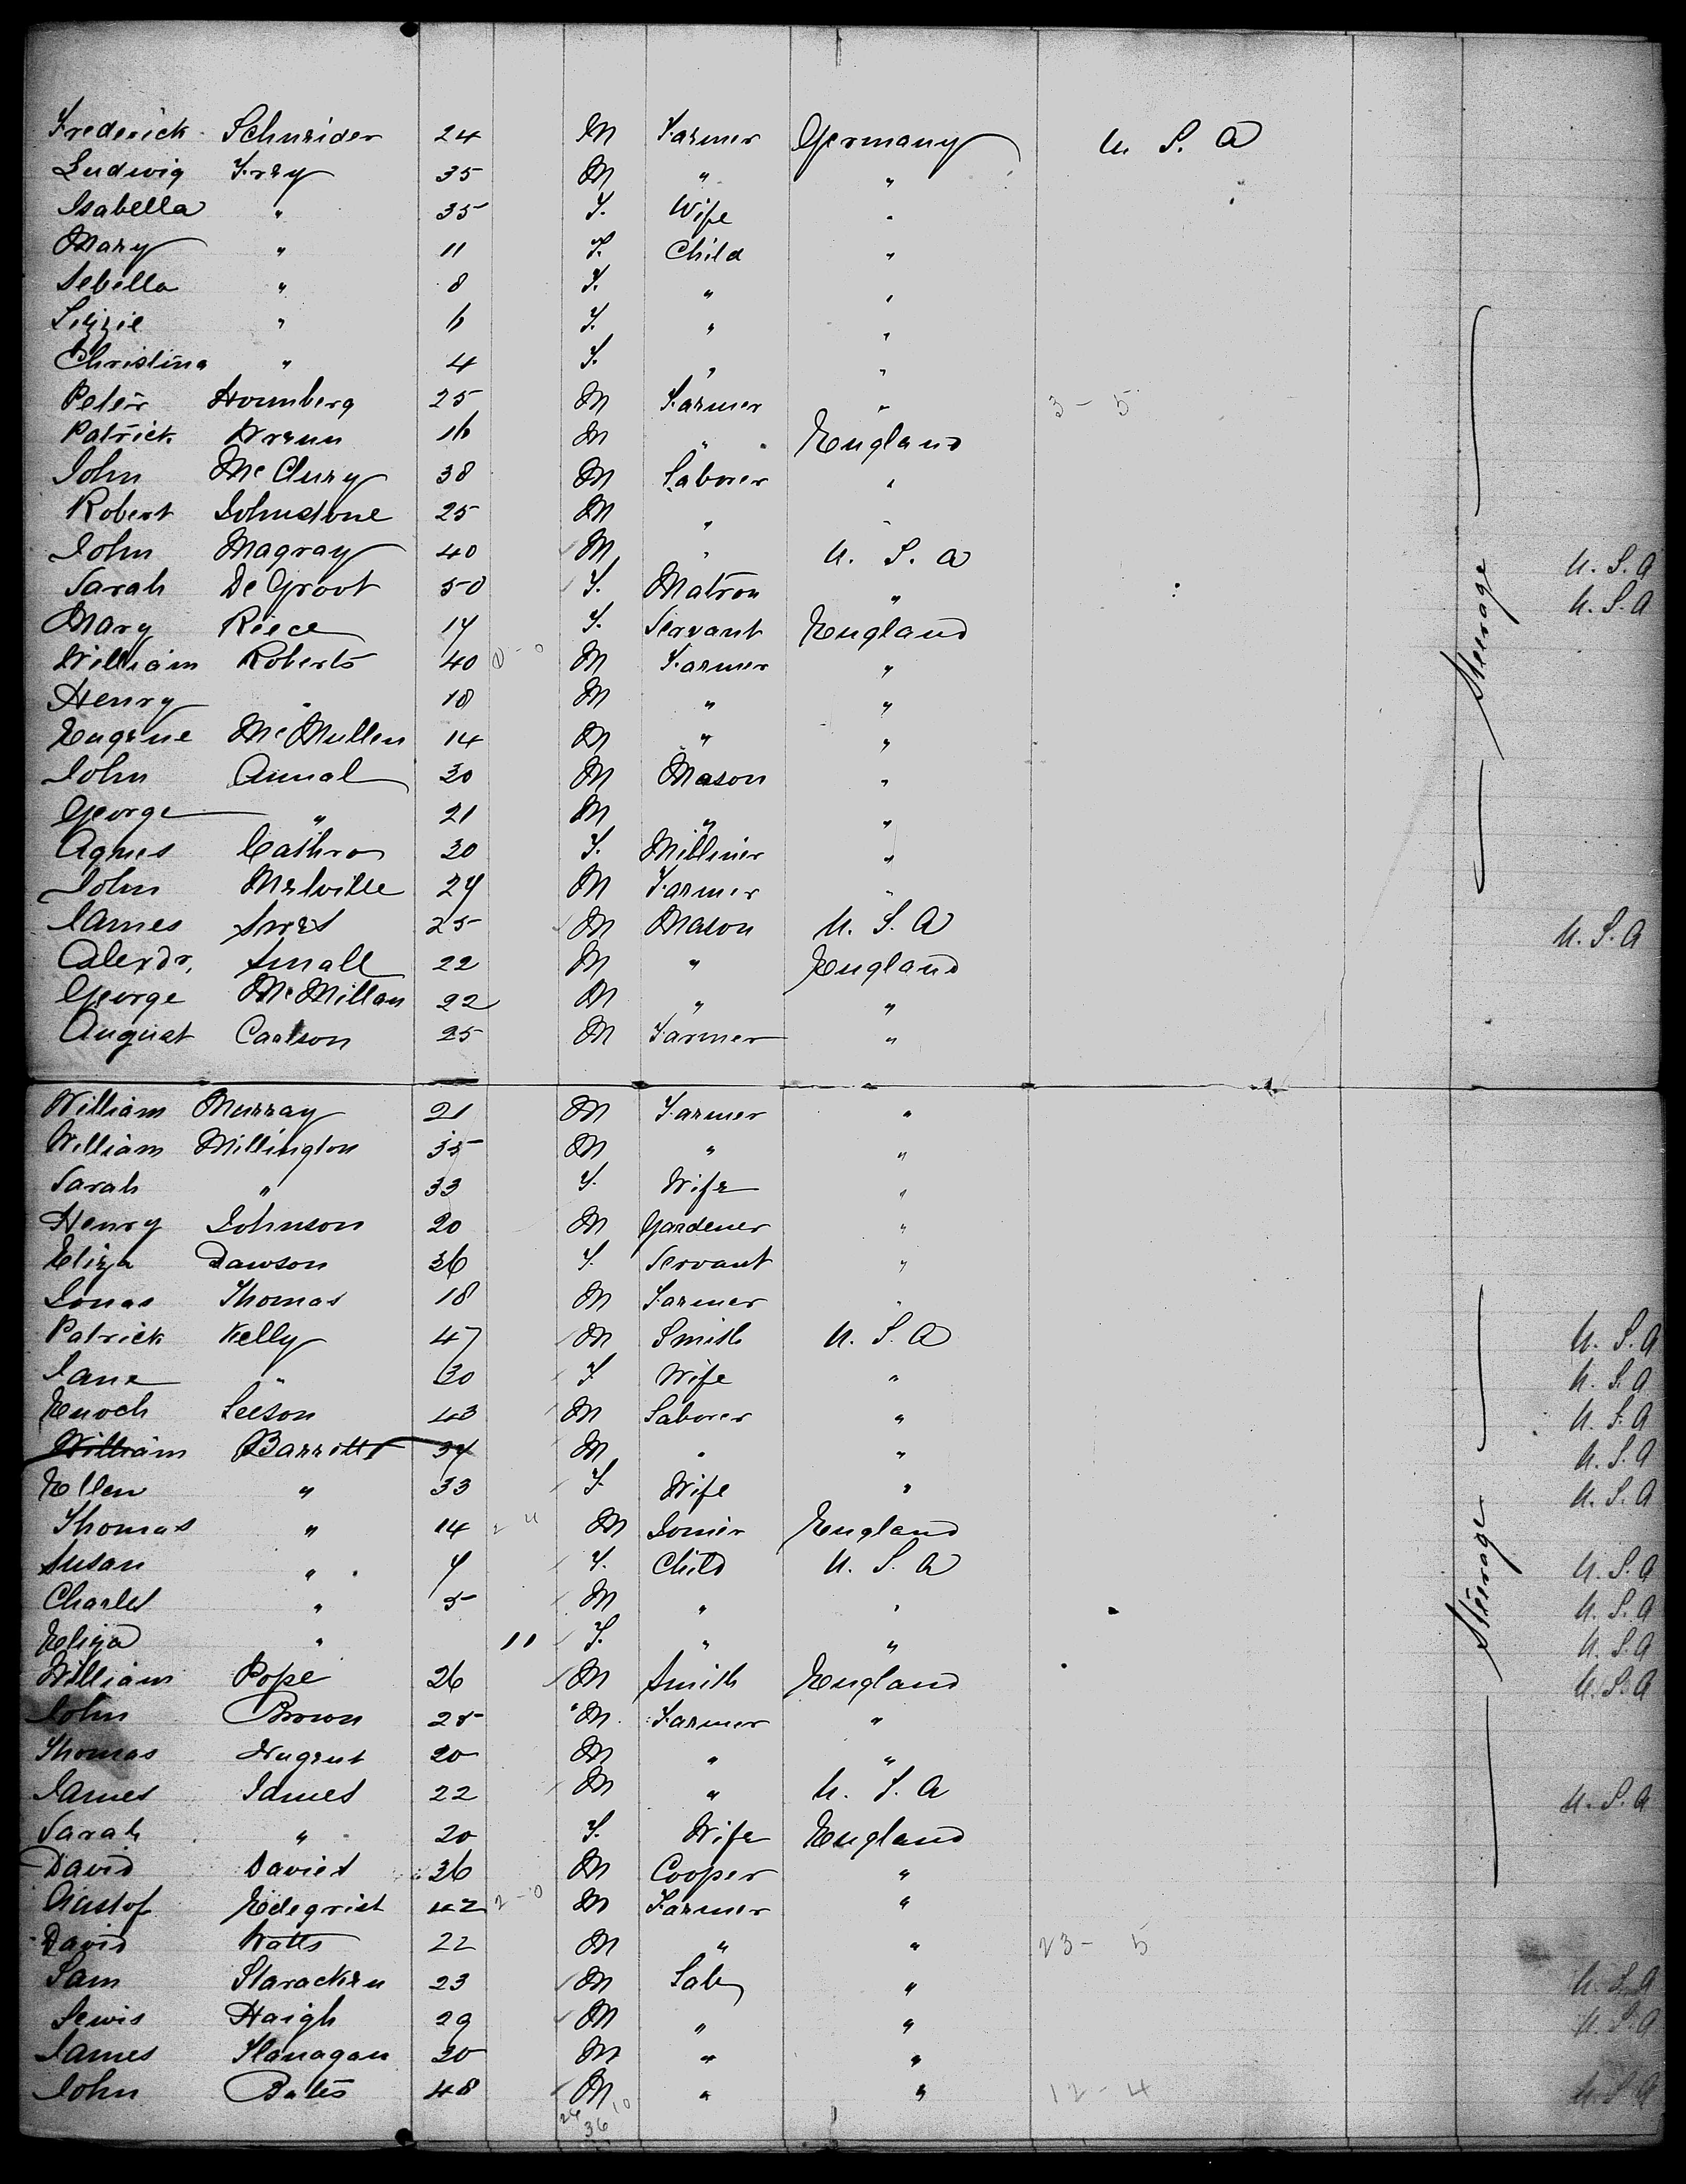 Frederick Schneider 24 M Farmer Germany U. S. A
Ludwig Frey 35 M " "
Isabella " 35 F. Wife "
Mary " 11 F. Child "
Sebella " 8 F. " "
Lizzie " 6 F. " "
Christina " 4 F. " "
Peter Homberg 25 M Farmer " 3 - 5
Patrick Wrenn 16 M " " England
John McClury 38 M Laborer "
Robert Johnstone 25 M " "
John Magray 40 M " U. S. A U. S. A
Sarah De Groot 50 F. Matron " U. S. A
Mary Riece 17 F. Servant England
William Roberts 40 M Farmer "
Henry " 18 M " "
Eugene McMullen 14 M " "
John Annal 30 M Mason "
George " 21 M " "
Agnes Cathro 30 F. Milliner "
John Melville 27 M Farmer "
James 25 M Mason U. S. A U. S. A
Alexdr. Small 22 M " England
George McMillan 22 M " "
August Carlson 25 M Farmer "
Steerage
William Murray 21 M Farmer "
William Millington 35 M " "
Sarah " 33 F. Wife "
Henry Johnson 20 M Gardener "
Eliza Dawson 36 F. Servant "
Jonas Thomas 18 M Farmer "
Patrick Kelly 47 M Smith U. S. A U. S. A
Jane " 30 F Wife " U. S. A
Enoch Leeson 43 M Laborer " U. S. A
William Barrett 37 M " " U. S. A
Ellen " 33 F Wife " U. S. A
Thomas " 14 M Joiner England
Susan " 7 F. Child U. S. A U. S. A
Charles " 5 M " " U. S. A
Eliza " 11 F. " " U. S. A
William Pope 26 M Smith England U. S. A
John Brown 25 M Farmer "
Thomas Nugent 20 M " "
James James 22 M " U. S. A U. S. A
Sarah " 20 F. Wife England
David Davies 36 M Cooper "
Gustof Edeqrist 42 2-0 M Farmer "
David Watts 22 M " " 23 - 5
Sam Staracken 23 M Lab " U. S. A
Lewis Haigh 29 M " " U. S. A
James Flanagan 20 M " "
John Bates 48 M " " 12 - 4 U. S. A
26 10
36
Steerage